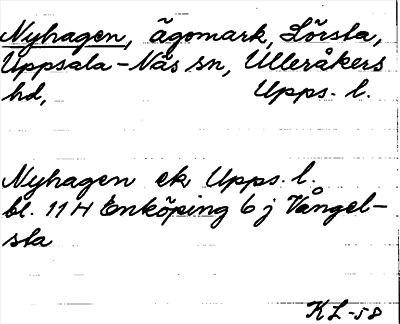 Nyhagen, ägomark, Lörsta,
Uppsala-Näs sn, Ulleråkers
hd, Upps. l.
Nyhagen ek Upps. l.
bl. 11 H Enköping 6 j Vångel-
sta
KL-58